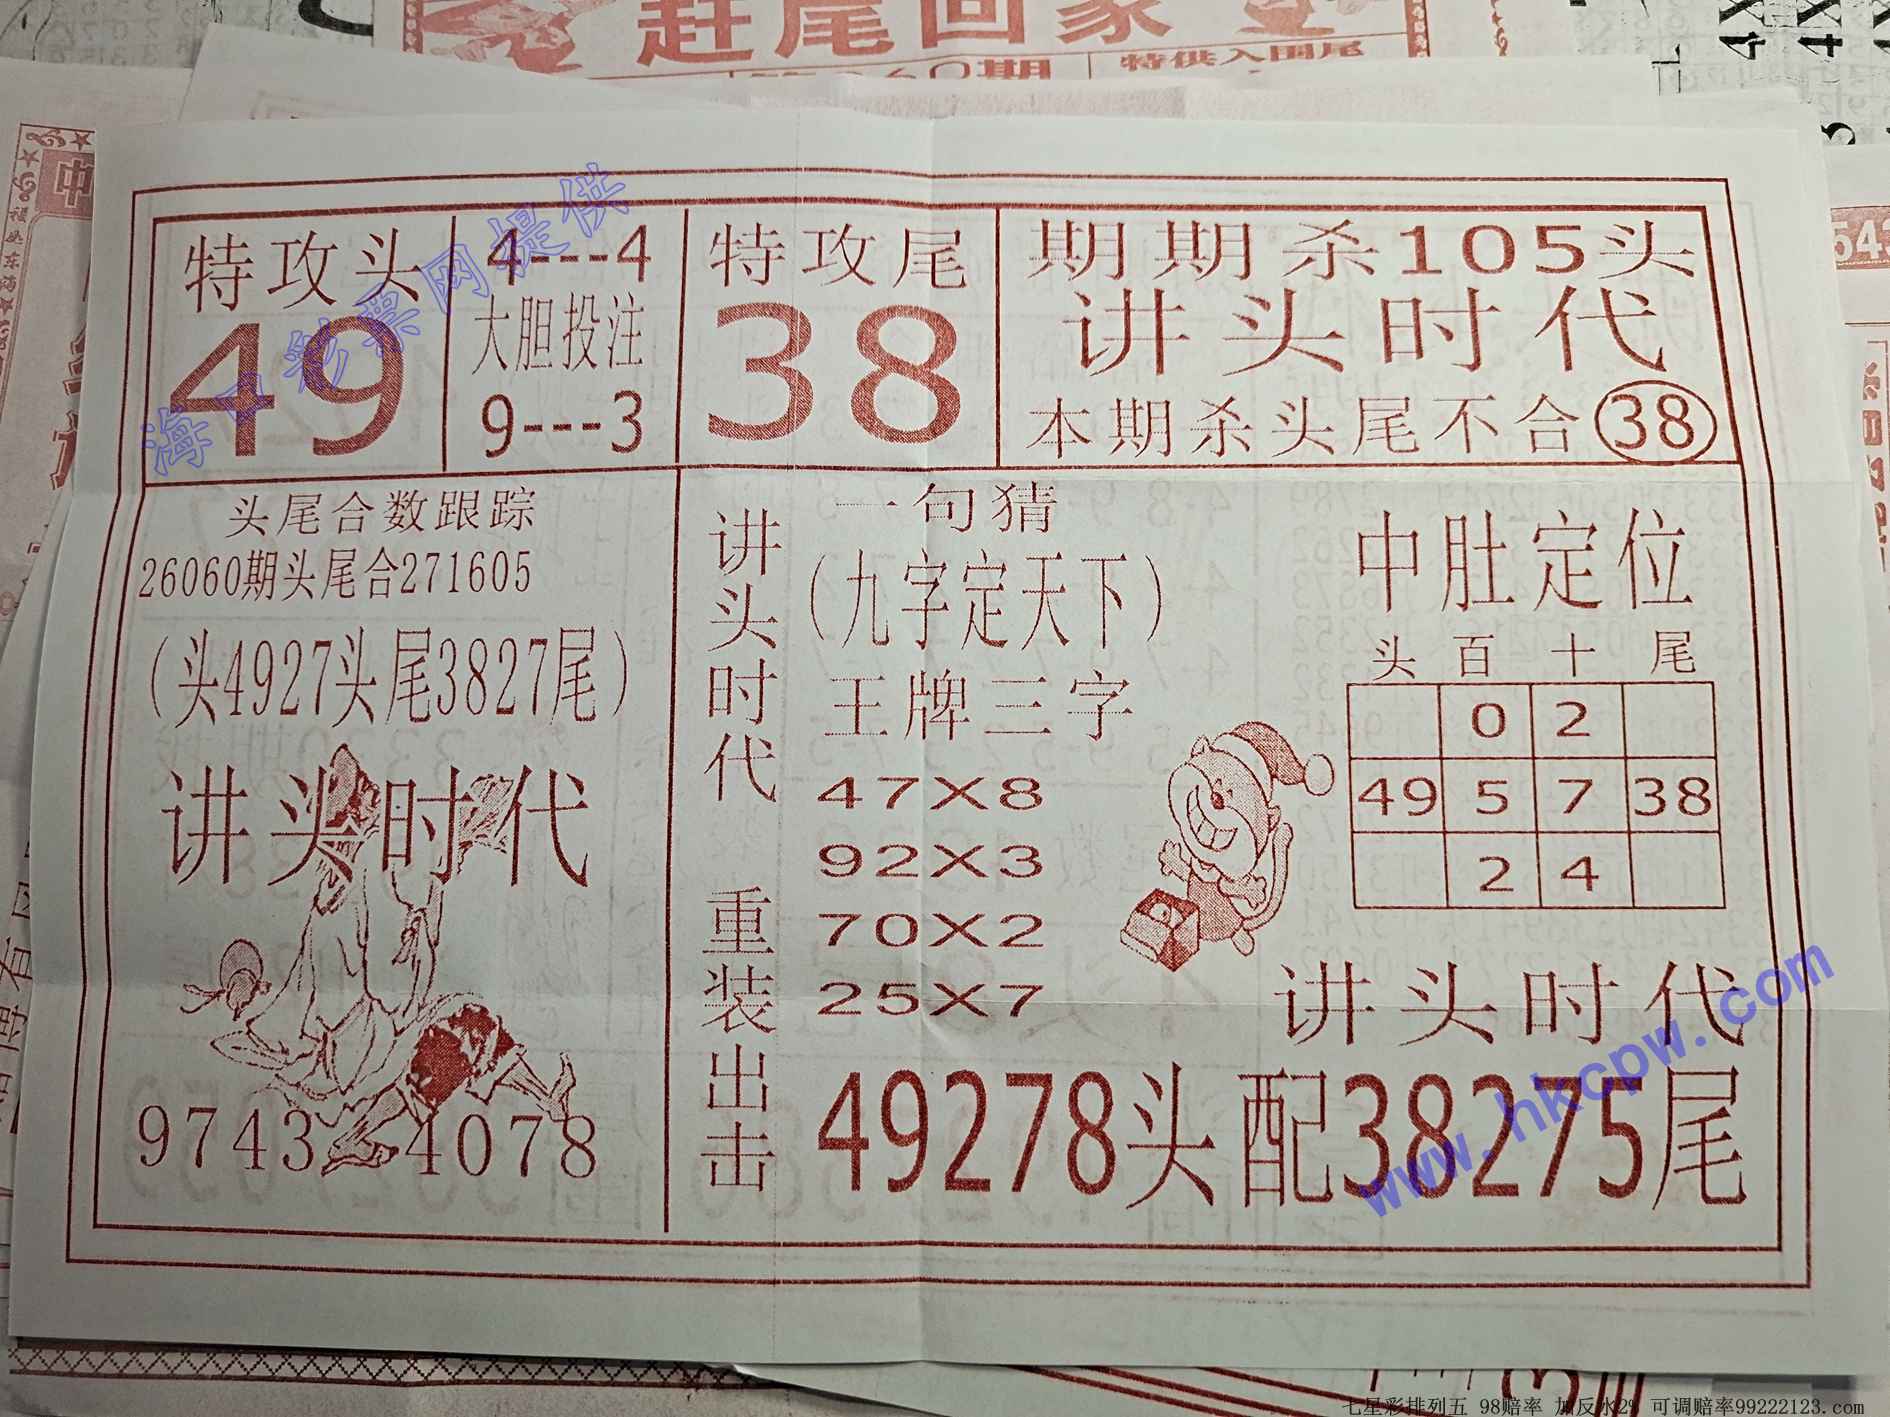 赶尾回家
060期
特供入围尾
特攻头
49
4---4
大胆投注
9---3
特攻尾
38
期期杀105头
讲头时代
本期杀头尾不合38
头尾合数跟踪
26060期头尾合271605
(头4927头尾3827尾)
讲头时代
9743 4078
讲头时代
重装出击
一句猜
(九字定天下)
王牌三字
47X8
92X3
70X2
25X7
中肚定位
头 百 十 尾
0 2
49 5 7 38
2 4
讲头时代
49278头配38275尾
海口彩票网提供
www.hkcpw.com
七星彩排列五 98赔率 加反水2% 可调赔率99222123.com